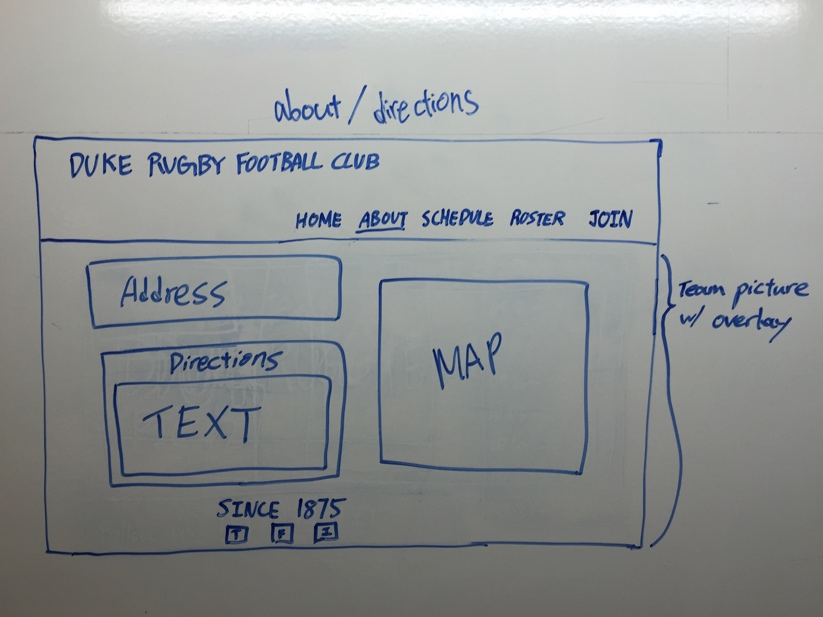 about / directions
DUKE RUGBY FOOTBALL CLUB
HOME ABOUT SCHEDULE ROSTER JOIN
Address
Directions
TEXT
MAP
Team picture
w/ overlay
SINCE 1875
T F I